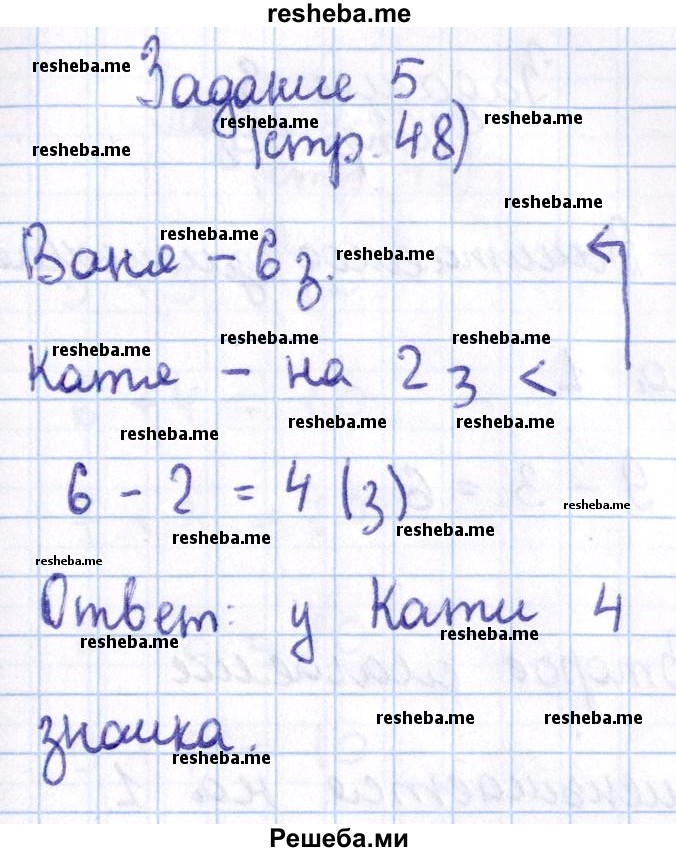 resheba.me
resheba.me
Задание 5
resheba.me resheba.me
(стр. 48)
resheba.me
resheba.me
resheba.me
Ваня - 6 з.
resheba.me
resheba.me resheba.me resheba.me
Катя - на 2 з <
resheba.me resheba.me resheba.me
6 - 2 = 4 (з)
resheba.me
resheba.me resheba.me
resheba.me
Ответ: у Кати 4
resheba.me resheba.me
resheba.me resheba.me
значка.
resheba.me
Решеба.ми